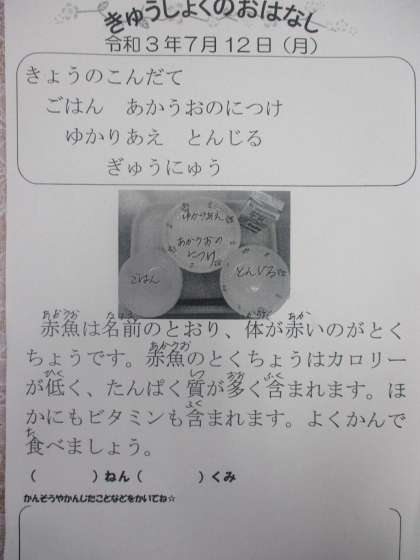 きゅうしょくのおはなし
令和3年7月12日（月）
きょうのこんだて
ごはん　あかうおのにつけ
ゆかりあえ　とんじる
ぎゅうにゅう
ゆかりあえ
あかうおの
につけ
ごはん
とんじる
赤魚は名前のとおり、体が赤いのがとく
ちょうです。赤魚のとくちょうはカロリー
が低く、たんぱく質が多く含まれます。ほ
かにもビタミンも含まれます。よくかんで
食べましょう。
（　　　）ねん（　　　）くみ
かんそうやかんじたことなどをかいてね☆